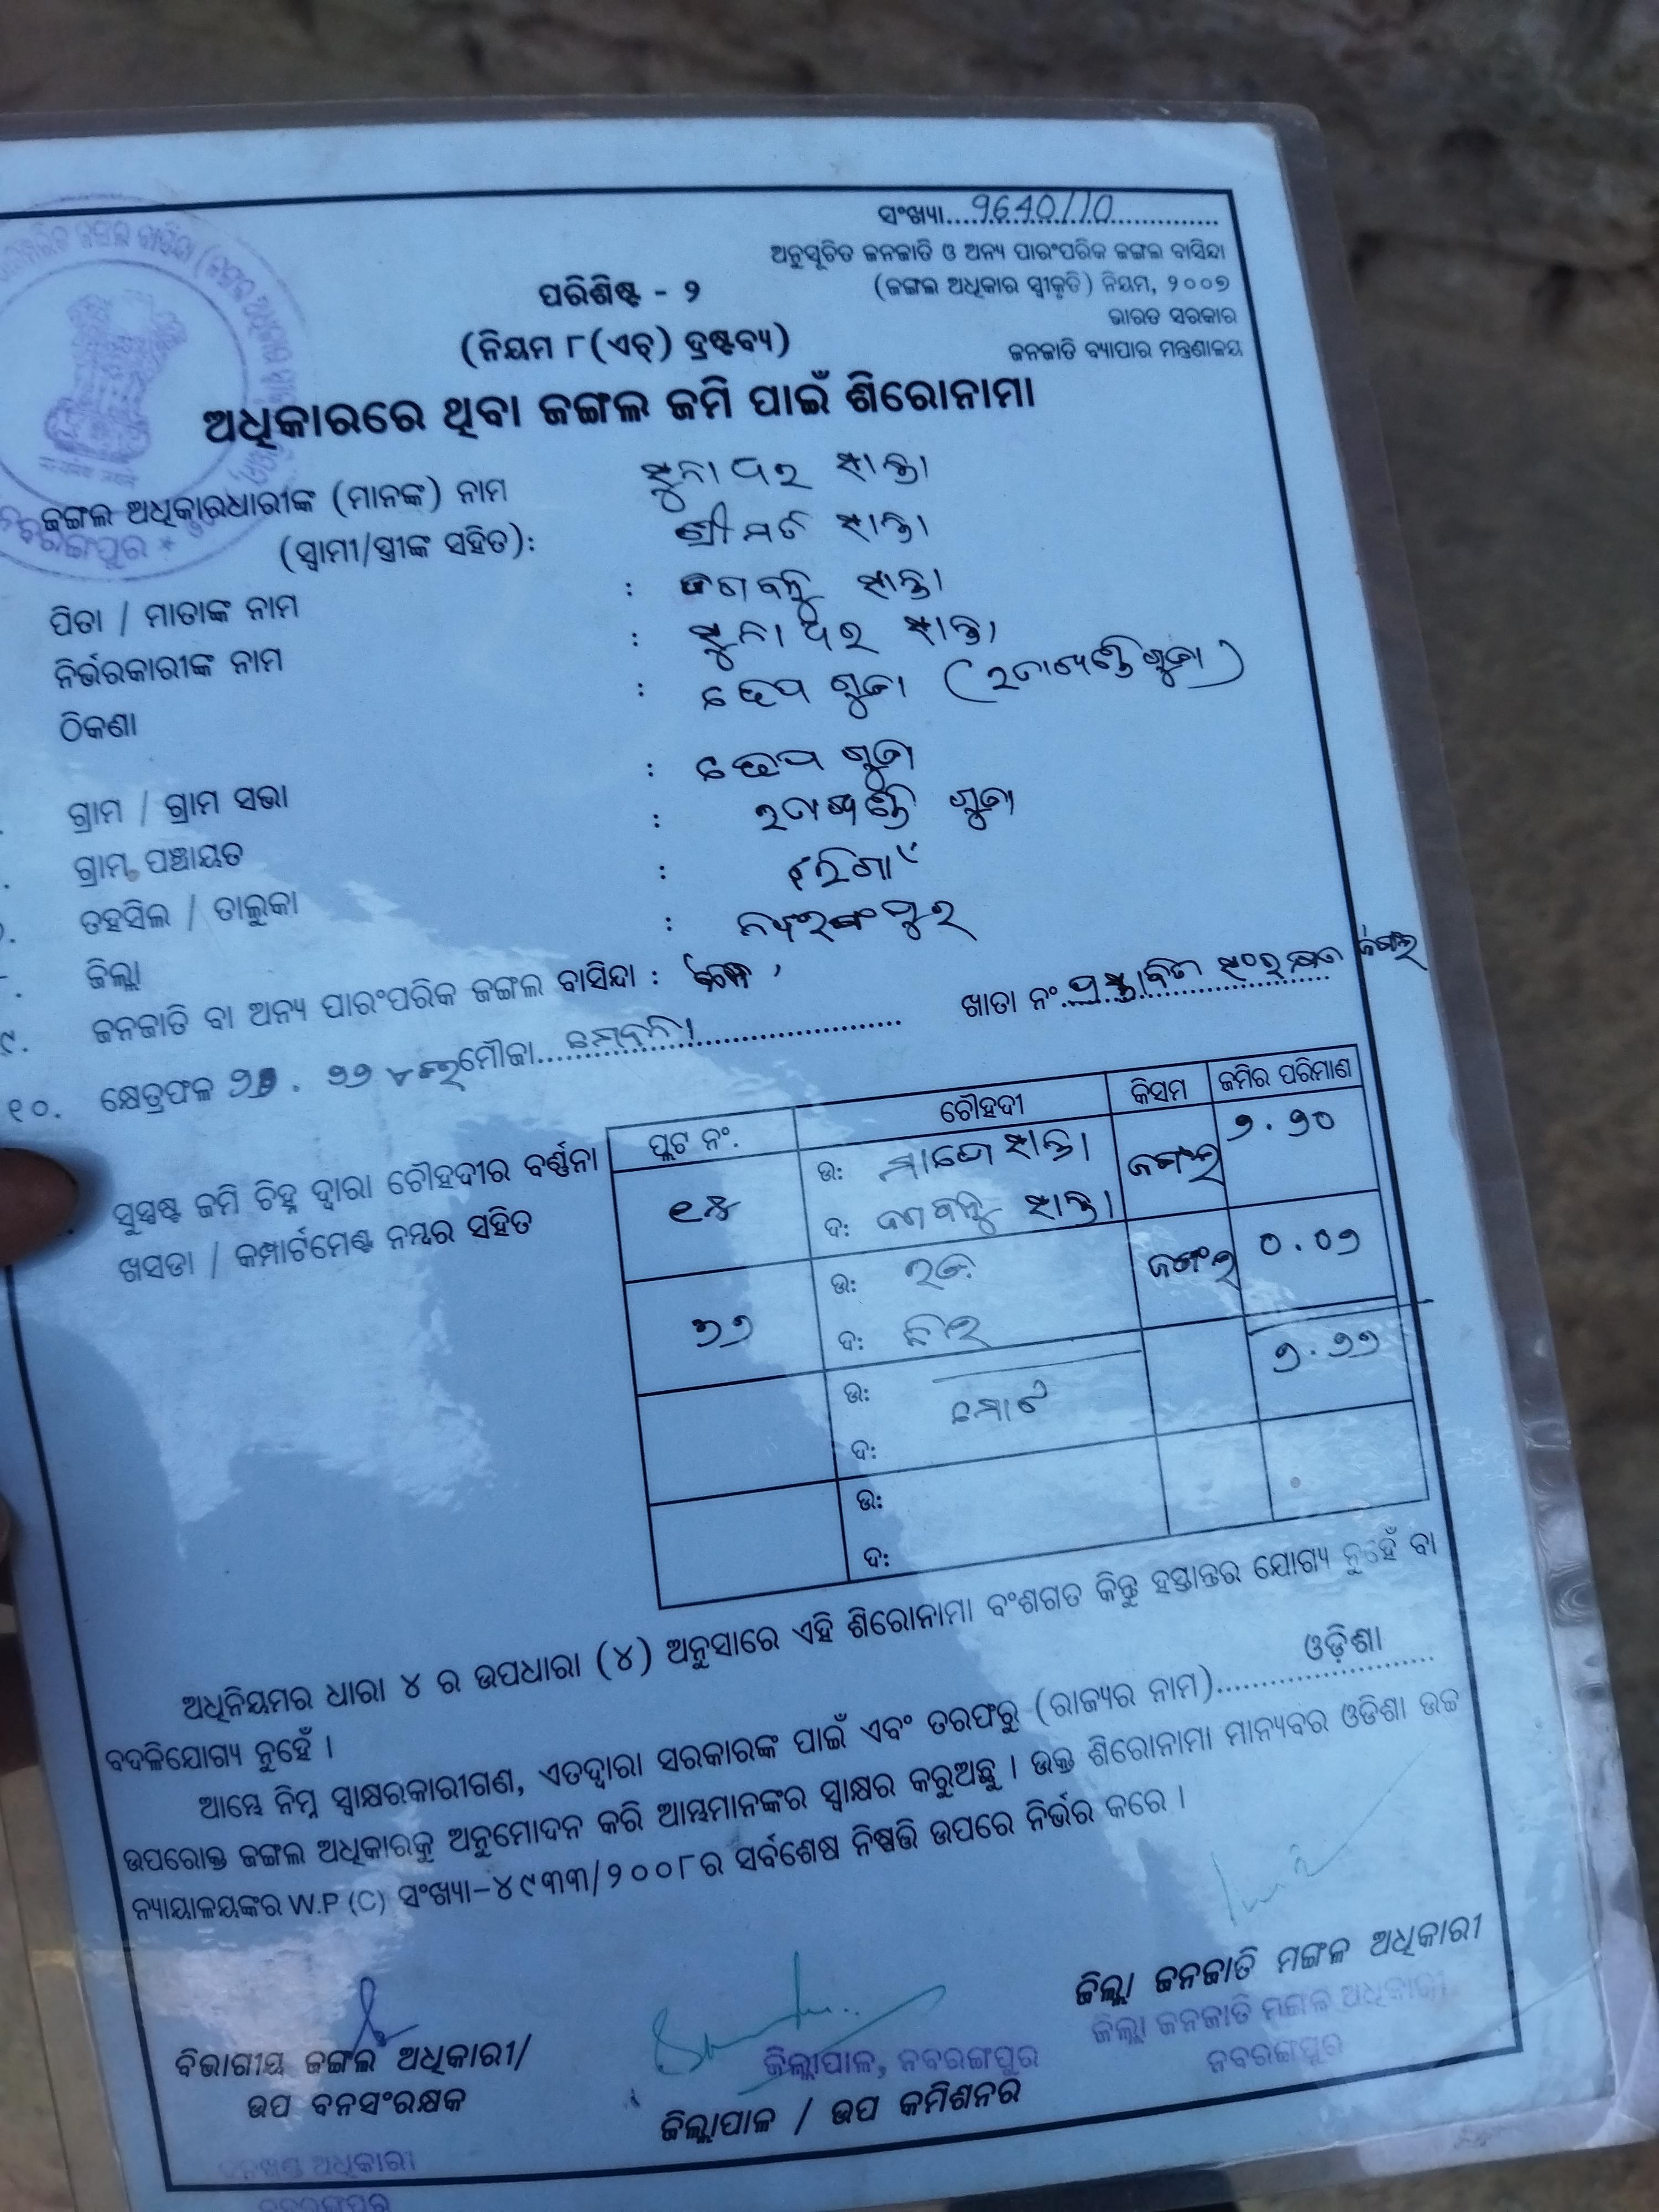 ସଂଖ୍ୟା....9640/10
ଅନୁସୂଚିତ ଜନଜାତି ଓ ଅନ୍ୟ ପାରଂପରିକ ଜଙ୍ଗଲ ବାସିନ୍ଦା
(ଜଙ୍ଗଲ ଅଧିକାର ସ୍ୱୀକୃତି) ନିୟମ, ୨୦୦୭
ଭାରତ ସରକାର
ଜନଜାତି ବ୍ୟାପାର ମନ୍ତ୍ରଣାଳୟ
ପରିଶିଷ୍ଟ - ୨
(ନିୟମ ୮(ଏଚ୍) ଦ୍ରଷ୍ଟବ୍ୟ)
ଅଧିକାରରେ ଥିବା ଜଙ୍ଗଲ ଜମି ପାଇଁ ଶିରୋନାମା
ଜଙ୍ଗଲ ଅଧିକାରଧାରୀଙ୍କ (ମାନଙ୍କ) ନାମ ସୁନାଧର ସାନ୍ତା
(ସ୍ୱାମୀ/ସ୍ତ୍ରୀଙ୍କ ସହିତ): ଶ୍ରୀମତି ସାନ୍ତା
ପିତା / ମାତାଙ୍କ ନାମ : ଜଗବନ୍ଧୁ ସାନ୍ତା
ନିର୍ଭରକାରୀଙ୍କ ନାମ : ସୁନାଧର ସାନ୍ତା
ଠିକଣା : ଗୁଡା
ଗ୍ରାମ / ଗ୍ରାମ ସଭା : ଗୁଡା
ଗ୍ରାମ ପଞ୍ଚାୟତ : ଗୁଡା
ତହସିଲ / ତାଲୁକା : ଝରିଗାଁ
ଜିଲ୍ଲା : ନବରଙ୍ଗପୁର
୯. ଜନଜାତି ବା ଅନ୍ୟ ପାରଂପରିକ ଜଙ୍ଗଲ ବାସିନ୍ଦା :
୧୦. କ୍ଷେତ୍ରଫଳ ମୌଜା ଖାତା ନଂ ପ୍ରସ୍ତାବିତ ସଂରକ୍ଷିତ ଜଙ୍ଗଲ
ସୁସ୍ପଷ୍ଟ ଜମି ଚିହ୍ନ ଦ୍ୱାରା ଚୌହଦୀର ବର୍ଣ୍ଣନା
ଖସଡା / କମ୍ପାର୍ଟମେଣ୍ଟ ନମ୍ବର ସହିତ
ପ୍ଲଟ ନଂ. ଚୌହଦୀ କିସମ ଜମିର ପରିମାଣ
୧୪ ଉ: ସାନ୍ତା ଜଙ୍ଗଲ ୨.୨୦
ଦ: ଜଗବନ୍ଧୁ ସାନ୍ତା
୨୨ ଉ: ଜଙ୍ଗଲ ୦.୦୨
ଦ:
ଉ: ମୋଟ ୨.୨୨
ଦ:
ଉ:
ଦ:
ଅଧିନିୟମର ଧାରା ୪ ର ଉପଧାରା (୪) ଅନୁସାରେ ଏହି ଶିରୋନାମା ବଂଶଗତ କିନ୍ତୁ ହସ୍ତାନ୍ତର ଯୋଗ୍ୟ ନୁହେଁ ବା
ବଦଳିଯୋଗ୍ୟ ନୁହେଁ ।
ଆମ୍ଭେ ନିମ୍ନ ସ୍ୱାକ୍ଷରକାରୀଗଣ, ଏତଦ୍ୱାରା ସରକାରଙ୍କ ପାଇଁ ଏବଂ ତରଫରୁ (ରାଜ୍ୟର ନାମ)....ଓଡ଼ିଶା
ଉପରୋକ୍ତ ଜଙ୍ଗଲ ଅଧିକାରକୁ ଅନୁମୋଦନ କରି ଆମ୍ଭମାନଙ୍କର ସ୍ୱାକ୍ଷର କରୁଅଛୁ । ଉକ୍ତ ଶିରୋନାମା ମାନ୍ୟବର ଓଡିଶା ଉଚ୍ଚ
ନ୍ୟାୟାଳୟଙ୍କର W.P (C) ସଂଖ୍ୟା-୪୯୩୩/୨୦୦୮ର ସର୍ବଶେଷ ନିଷ୍ପତ୍ତି ଉପରେ ନିର୍ଭର କରେ ।
ବିଭାଗୀୟ ଜଙ୍ଗଲ ଅଧିକାରୀ/
ଉପ ବନସଂରକ୍ଷକ
ଜିଲ୍ଲାପାଳ, ନବରଙ୍ଗପୁର
ଜିଲ୍ଲାପାଳ / ଉପ କମିଶନର
ଜିଲ୍ଲା ଜନଜାତି ମଙ୍ଗଳ ଅଧିକାରୀ
ଜିଲ୍ଲା ଜନଜାତି ମଙ୍ଗଳ ଅଧିକାରୀ
ନବରଙ୍ଗପୁର
ଅଧିକାରୀ
ନବରଙ୍ଗପୁର